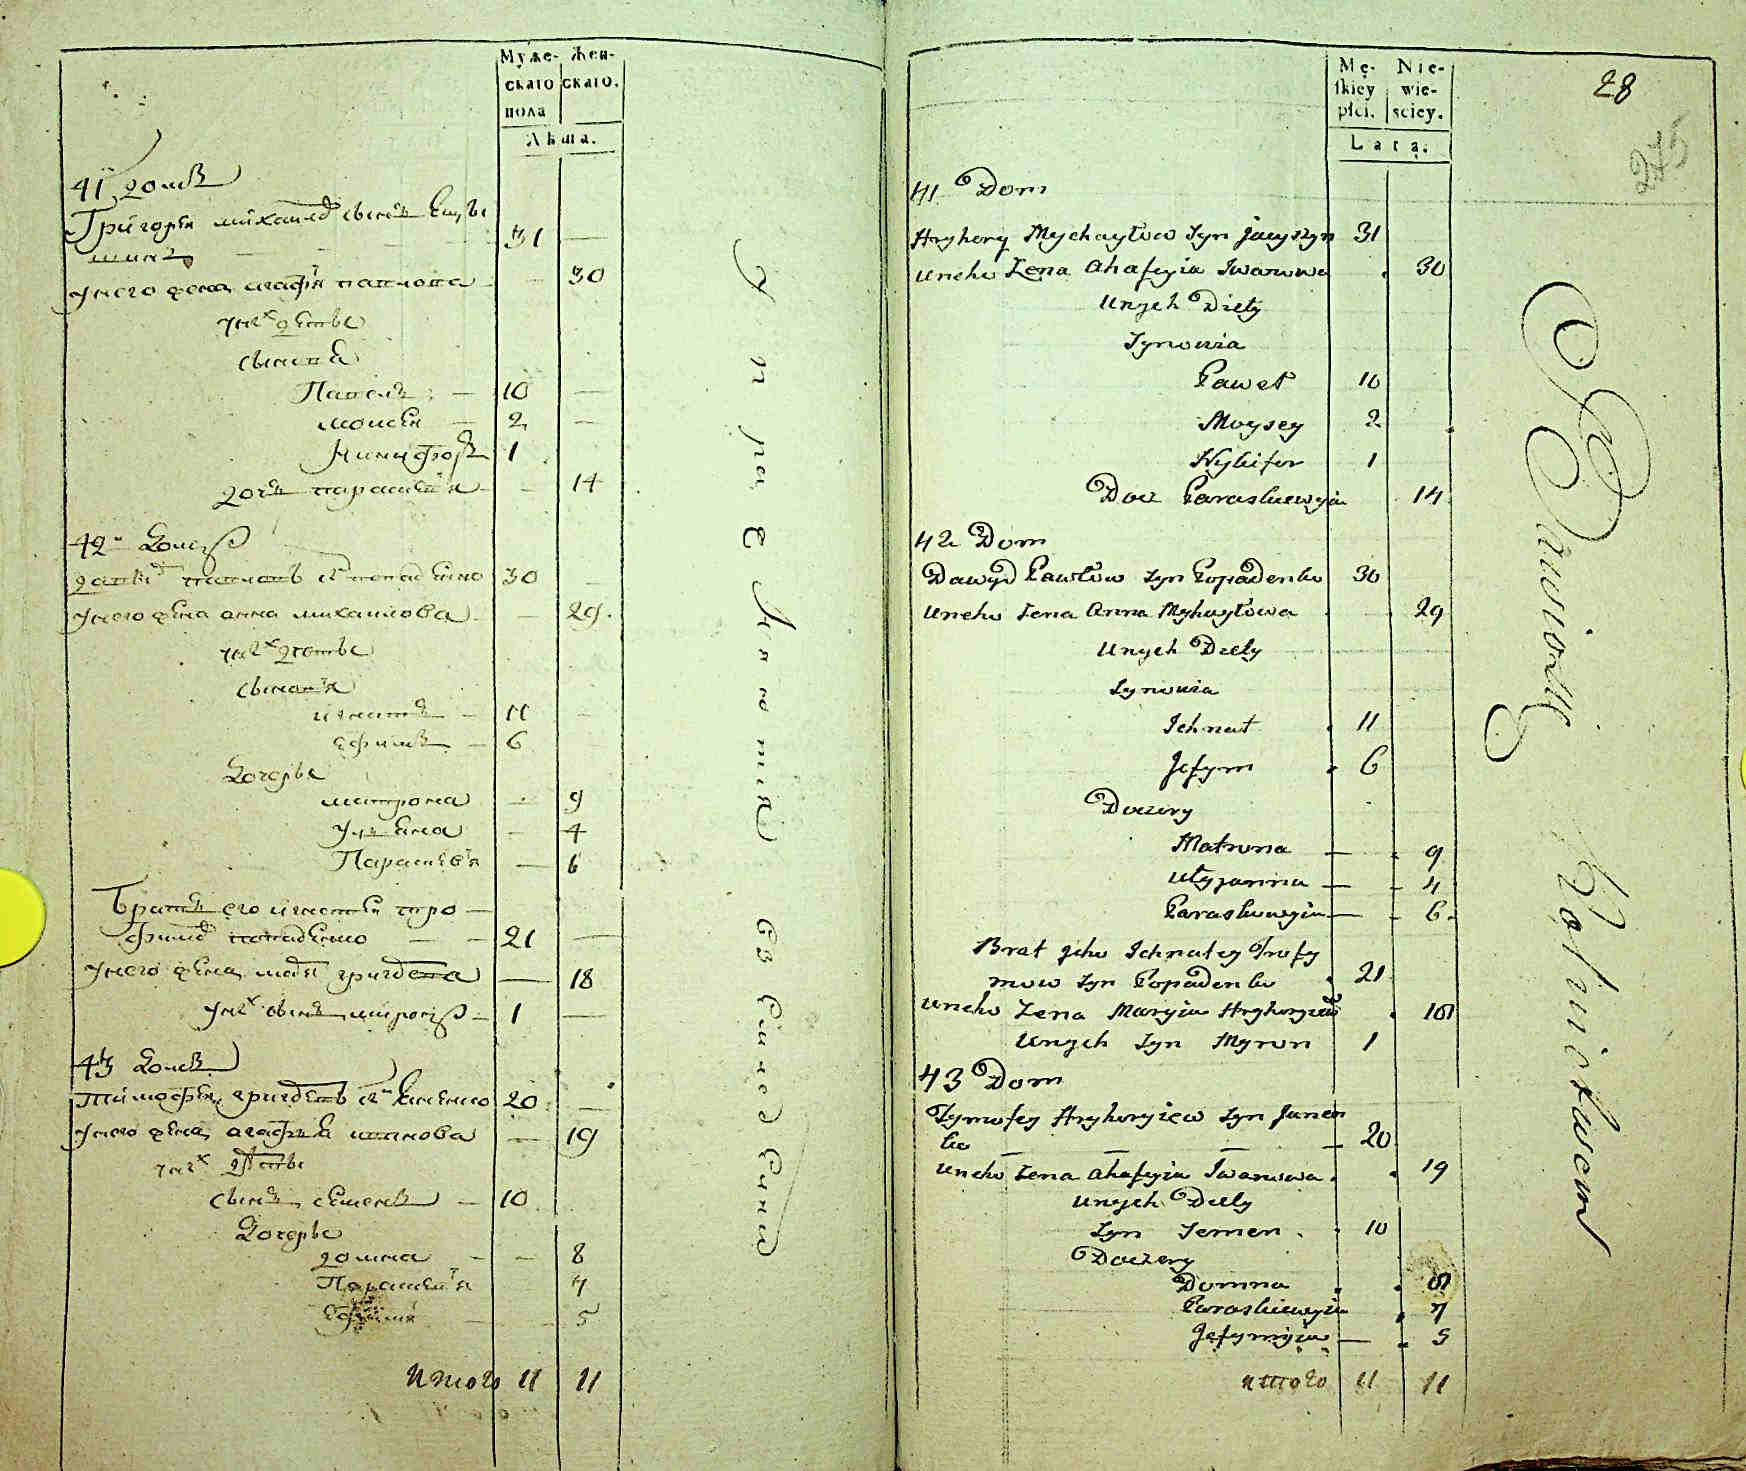 Муже-
скаго
пола
Жен-
скаго.
Лѣта.
41 домъ
Григорїй михайловъ сынъ
31
у него жена агафїя
30
у них дѣти
сыновя
Павелъ 10
моисей 2
Никифоръ 1
дочь параскевїя 14
42 домъ
30
у него жена анна михайлова 29.
у них дѣти
сыновя
игнатъ 11
ефимъ 6
дочери
матрона 9
улияна 4
Параскевїя 6
братъ его игнатей тро
21
у него жена 18
у них сынъ миронъ 1
43 домъ
тимофей 20
у него жена агафия иванова 19
у них дѣти
сынъ семенъ 10
дочери
домна 8
Параскевїя 7
5
итого 11 11
Mę-
skiey
płci.
Nie-
wie-
sciey.
Lata.
28
275
41 Dom
Hryhory Mychayłow Syn Jacyszyn 31
uneho Zena Ahafyia Iwanowa 30
unych Diety
Synowia
Paweł 10
Moysey 2
Nykifor 1
Docz Paraskiewyia 14
42 Dom
Dawyd Pawłow Syn Popadenko 30
uneho Zena Anna Myhayłowa 29
Unych Diety
Synowia
Ichnat 11
Jefym 6
Doczery
Matrona 9
Ulyjanna 4
Paraskiewyia 6
Brat jeho Ichnatey Trofy
mow Syn Popadenko 21
uneho Zena Maryia Hryhoryiewa 18
Unych Syn Myron 1
43 Dom
Tymofey Hryhoryiew Syn
ko 20
uneho Zena Ahafyia Iwanowa 19
unych Diety
Syn Semen 10
Doczery
Domna 8
Paraskiewyia 7
Jefymyia 5
итого 11 11